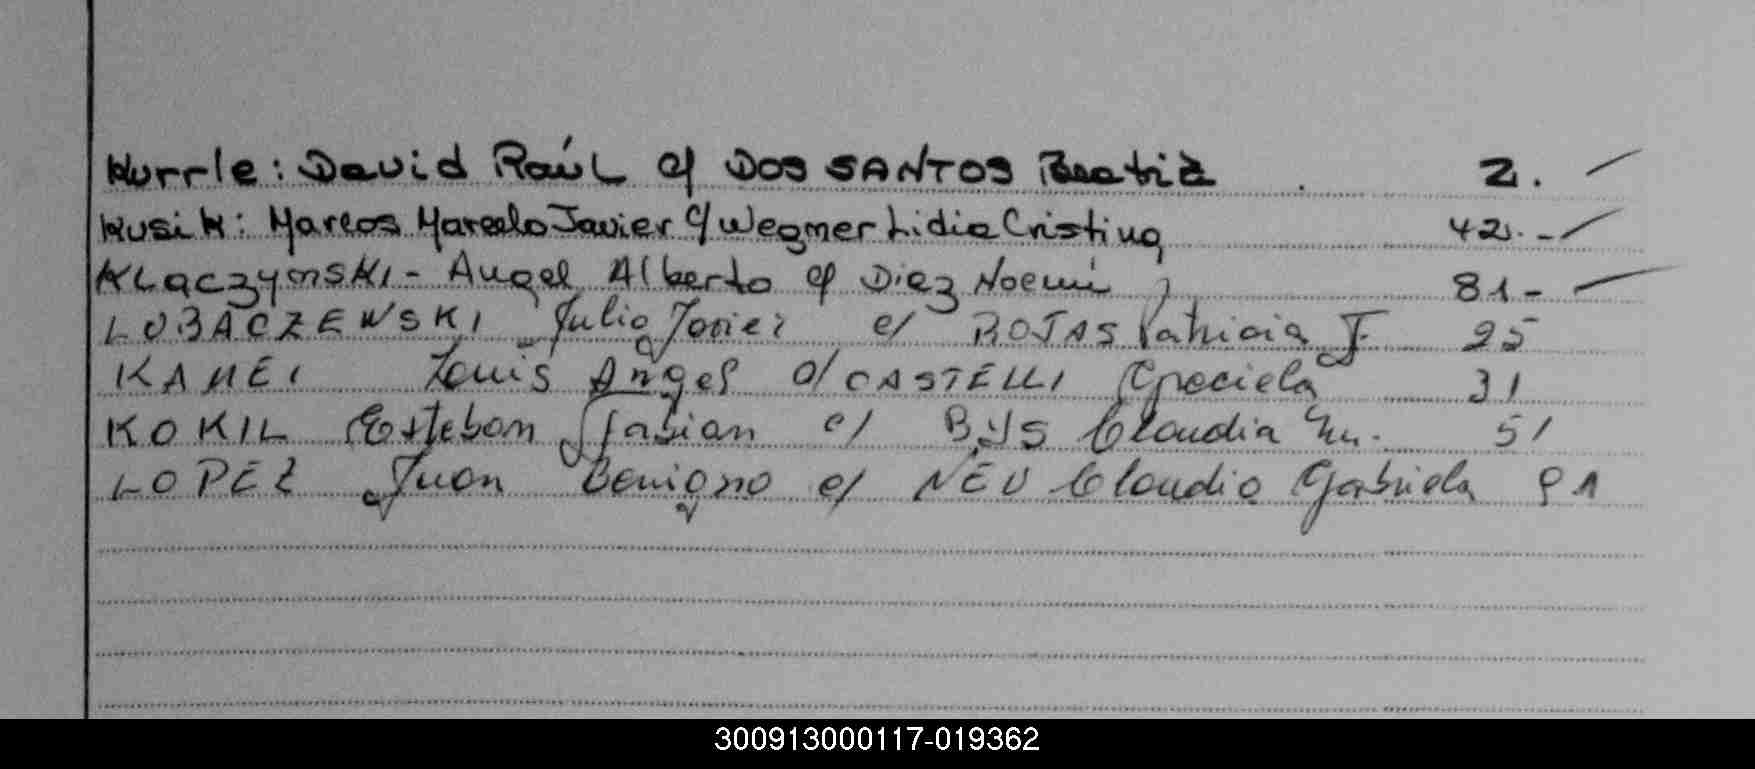 Kurrle: David Raúl c/ DOS SANTOS Beatriz 2.
Kusik: Marcos Marcelo Javier c/ Wegner Lidia Cristina 42.-
KLaczynski - Angel Alberto c/ Diez Noemi 81-
LOBACZEWSKI Julio Javier c/ ROJAS Patricia F. 25
KAMEI Louis Angel c/ CASTELLI Graciela 31
KOKIL Esteban Fabian c/ BYS Claudia M. 51
LOPEZ Juan Benigno c/ NEU Claudia Gabriela 91
300913000117-019362